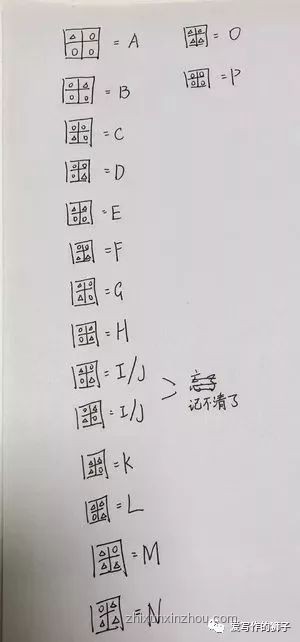 = A
= B
= C
= D
= E
= F
= G
= H
= I/J
= I/J
记不清了
= K
= L
= M
= N
= O
= P
zhixunxinzhou.com
爱写作的狮子